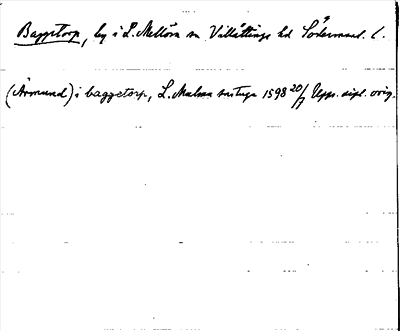 Baggetorp, by i L. Mellösa sn Villåttinge hd Södermanl. l.
(Åmund) i baggetorp, L. Malma sn 1598 20/7 Upps. dipl. orig.